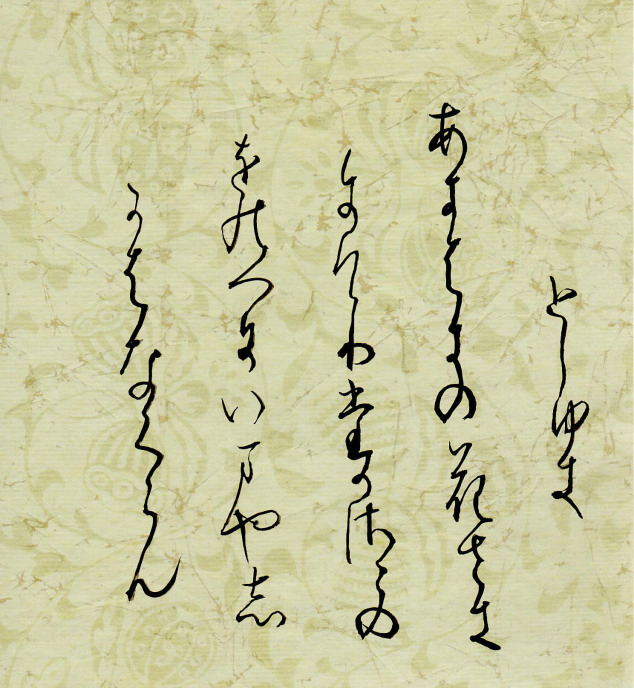 としゆき
あきはきの花さき
にけりたかさこの
をのへにいまやし
かはなくらん